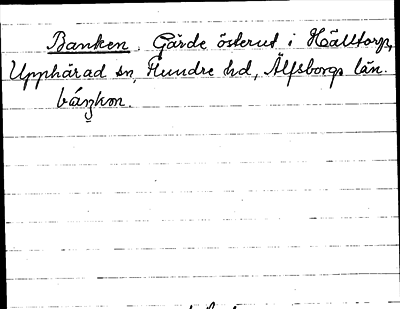 Banken. Gärde österut i Hälltorp,
Upphärad sn, Flundre hd, Älfsborgs län.